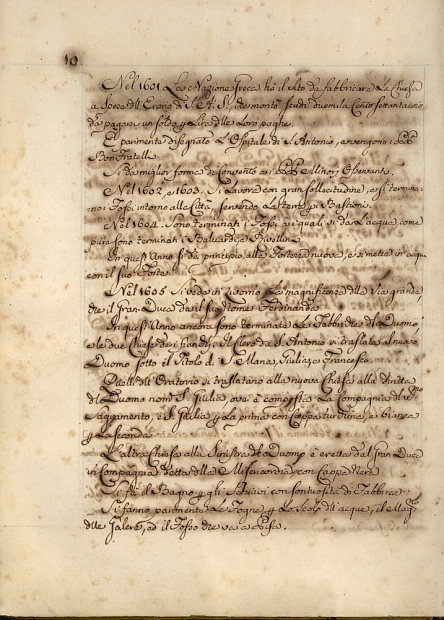 10.
Nel 1601 La Nazione Greca hà il sito da fabbricare La Chiesa
a Spese dell' Erario di S. A. S. di Scudi duemila Cento settantauno
da pagarsi un soldo p Lira delle Loro paghe.
E' parimente disegnato L'Ospitale di S. Antonio, e vengono i PP
BonFratelli.
Si dà miglior forma di Convento a i PP Minori Osservanti.
Nel 1602. e 1603. Si Lavora con gran sollecitudine, e si termina
no i Fossi intorno alla Città, servendo La terra p i Bastioni.
Nel 1604. Sono terminati i Fossi a i quali si dà L'acqua come
pure sono terminati i Baluardi, e Rivellini.
In quest' Anno si dà principio alla Fortezza nuova, e si mette in acqua
con il suo Forte.
Nel 1605 Si vede in Livorno La magnificenza della Via grande
che il Gran Duca dà il suo nome Ferdinanda.
In quest' Anno ancora sono terminate Le Fabbriche del Duomo
e le due Chiese de i fianchi. Il Clero da S. Antonio si traslata al nuovo
Duomo sotto il Titolo di S. Maria, Giulia, e Francesco.
Quelli dell' Oratorio si traslatano alla nuova Chiesa alla diritta
del Duomo nom. S. Giulia, ove è composta La Compagnia del SS.mo
Sagramento, e S. Giulia p La prima con Cappa turchina, e bianca
p La seconda.
L'altra Chiesa alla Sinistra del Duomo è eretta dal Gran Duca
in Compagnia detta della Misericordia, con Cappe Nere.
Si fà il Bagno p gli Schiavi con sontuosità di Fabbrica.
Si fanno parimente Le Fogne p Lo scolo dell' acque, il
delle Galere, ed il Fosso che va a Pisa.